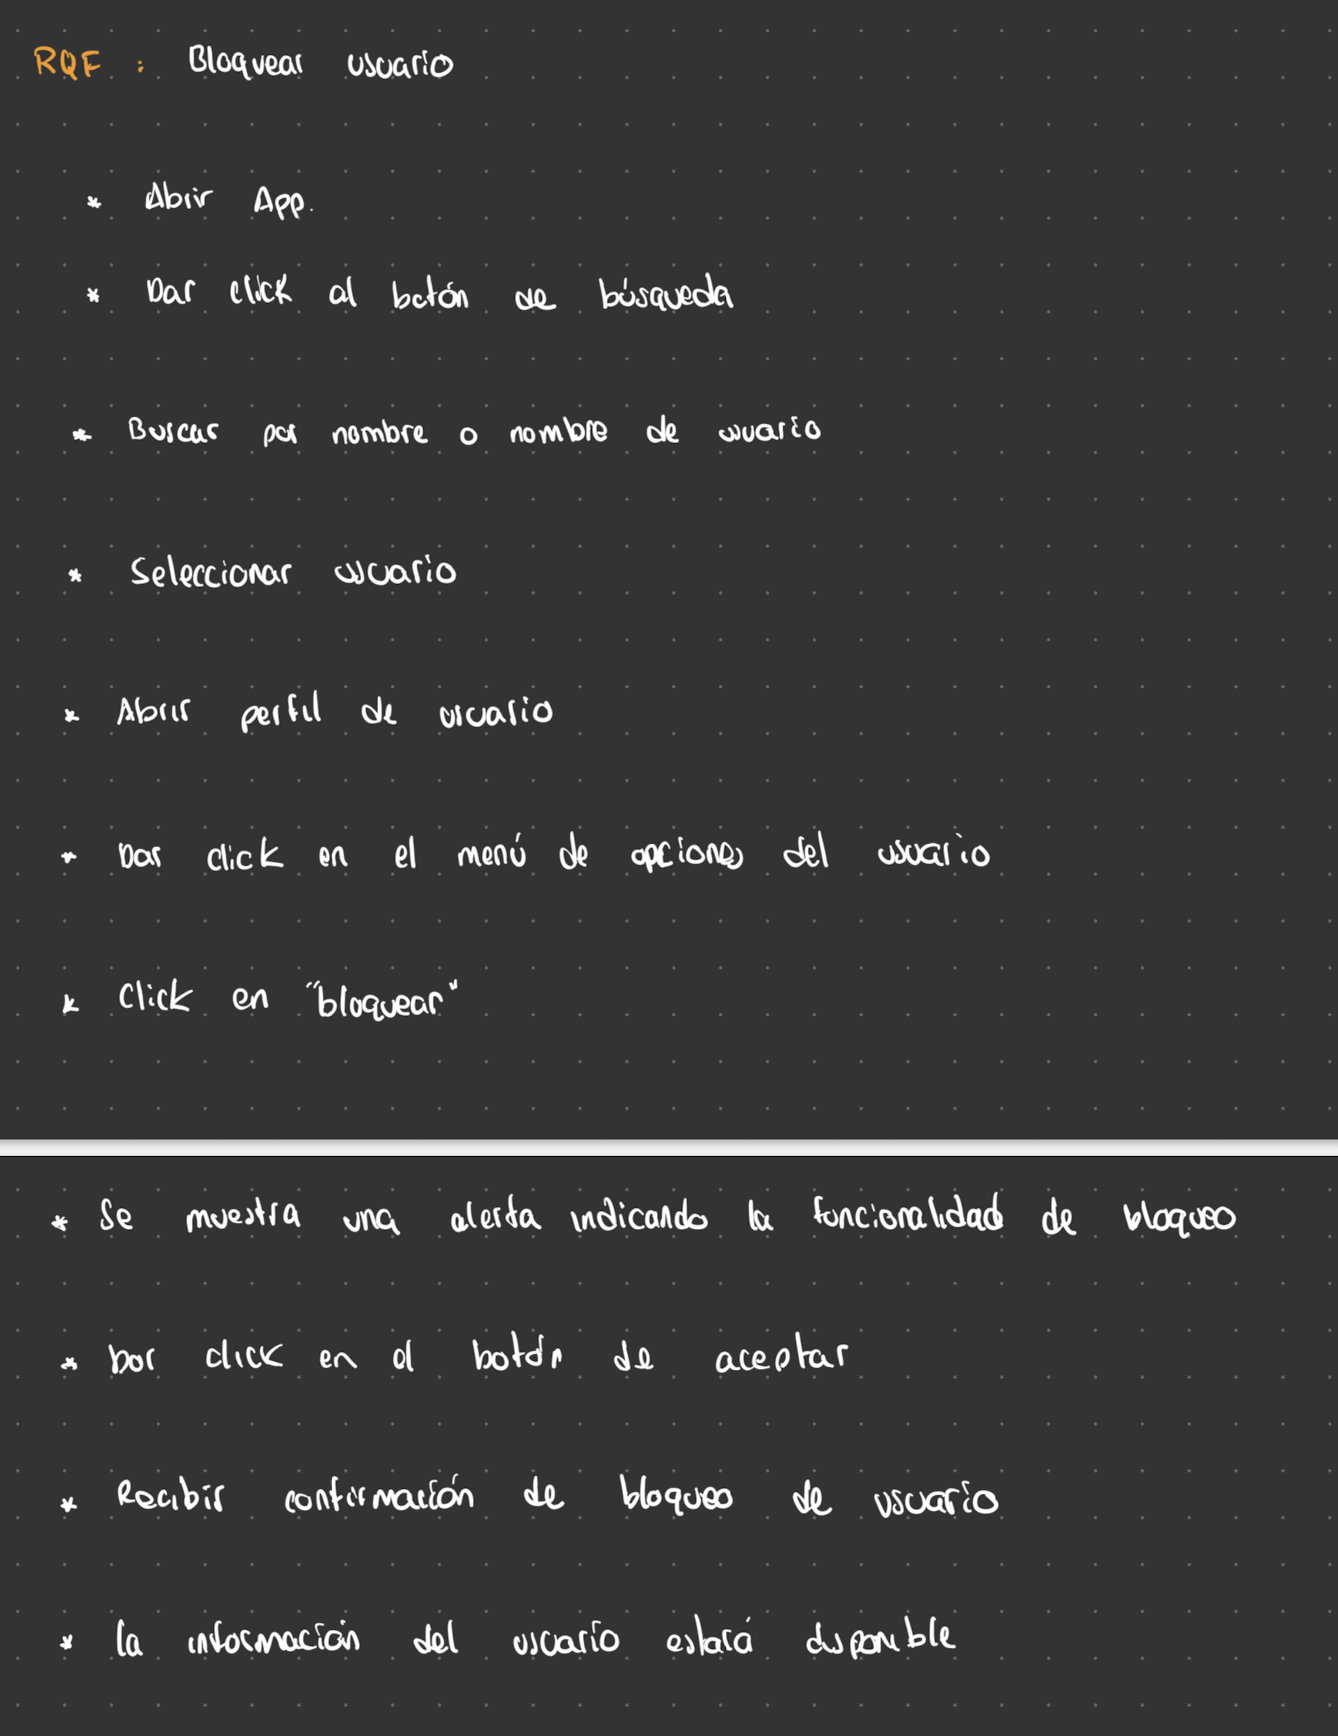 RQF : Bloquear usuario
* Abrir App.
* Dar click al botón de búsqueda
* Buscar por nombre o nombre de usuario
* Seleccionar usuario
* Abrir perfil de usuario
* Dar click en el menú de opciones del usuario
* Click en "bloquear"
* Se muestra una alerta indicando la funcionalidad de bloqueo
* Dar click en el botón de aceptar
* Recibir confirmación de bloqueo de usuario
* la información del usuario estará disponible